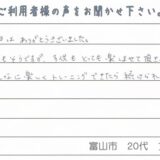 ご利用者様の声をお聞かせ下さい。
はありがとうございました。
もそうですが、子供もいても楽しませて頂き
なに楽しくトレーニングできたら続けられ
富山市 20代